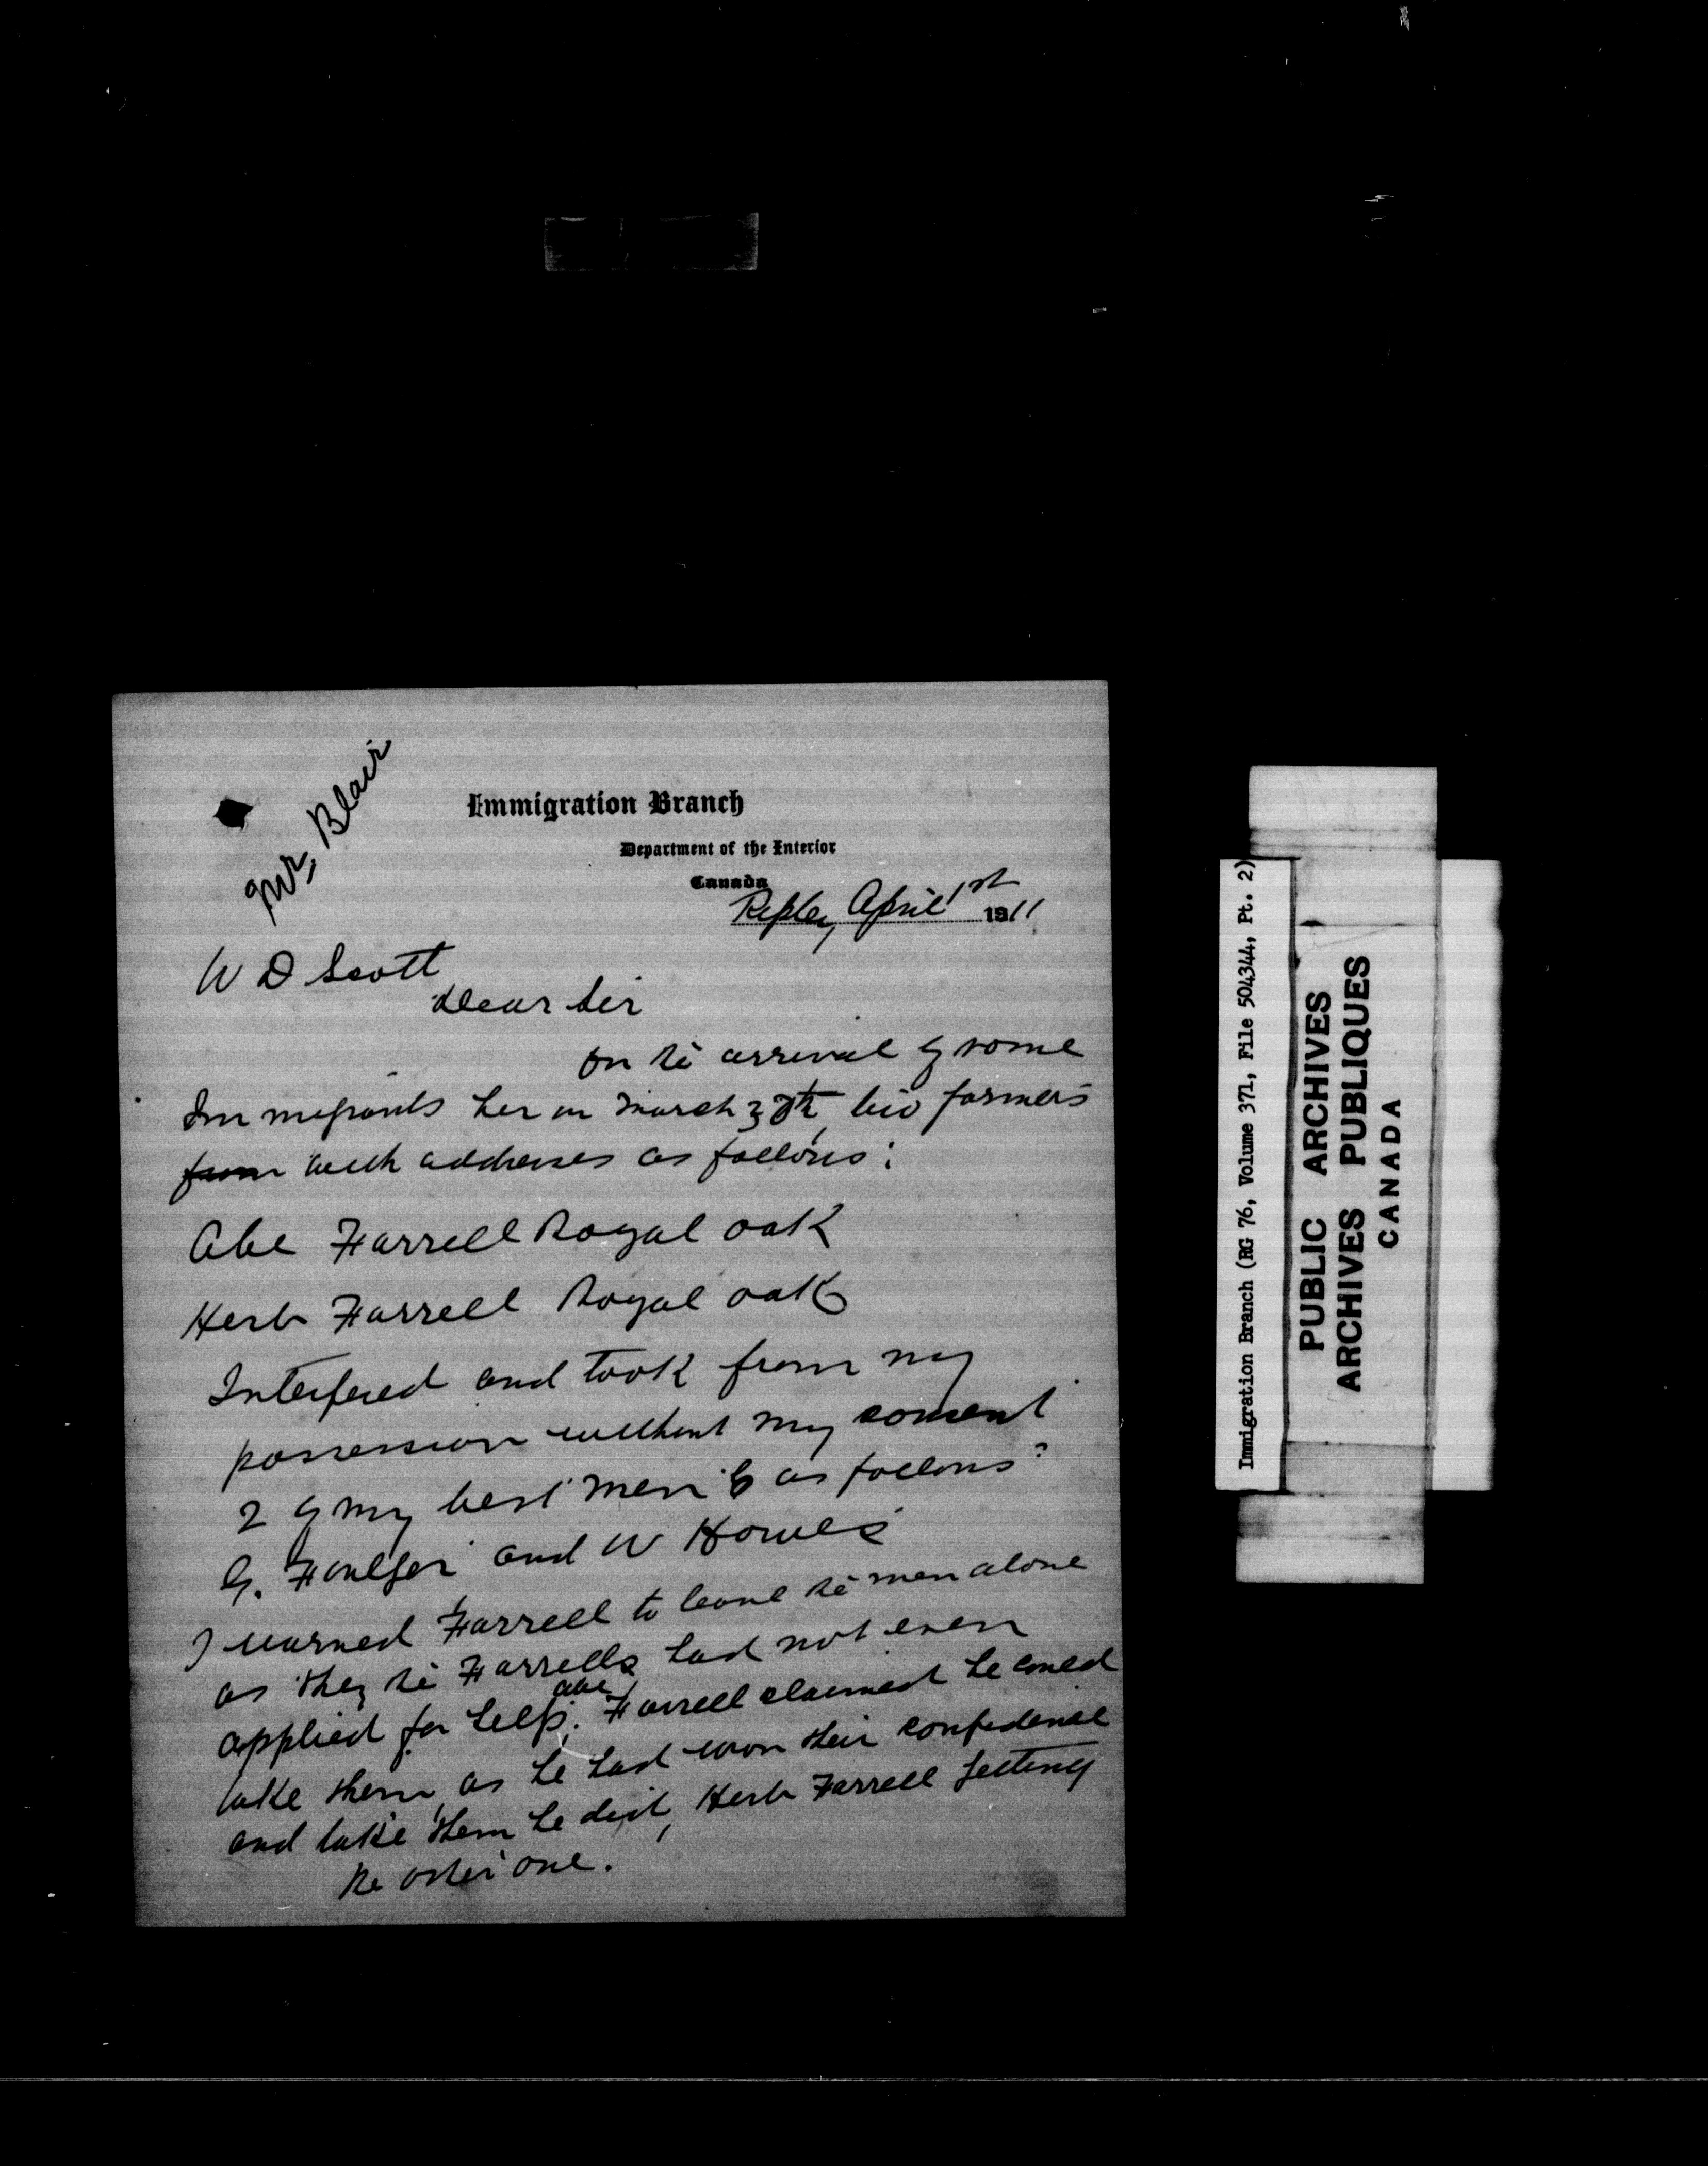 Mr. Blair
Immigration Branch
Department of the Interior
Canada
Ripley, April 1st 1911
W D Scott
Dear Sir
on the arrival of some
Immigrants her on March 30th, two farmers
from with addresses as follows:
Abe Farrell Royal oak
Herb Farrell Royal oak
Interfered and took from my
possession without my consent
2 of my best men as follows:
G. Foulger and W Howes
I warned Farrell to leave the men alone
as they the Farrells had not even
applied for help. Abe Farrell claimed he could
take them, as he had won their confidence
and take them he did, Herb Farrell getting
the other one.
Immigration Branch (RG 76, Volume 371, File 504344, Pt. 2)
PUBLIC ARCHIVES
ARCHIVES PUBLIQUES
CANADA